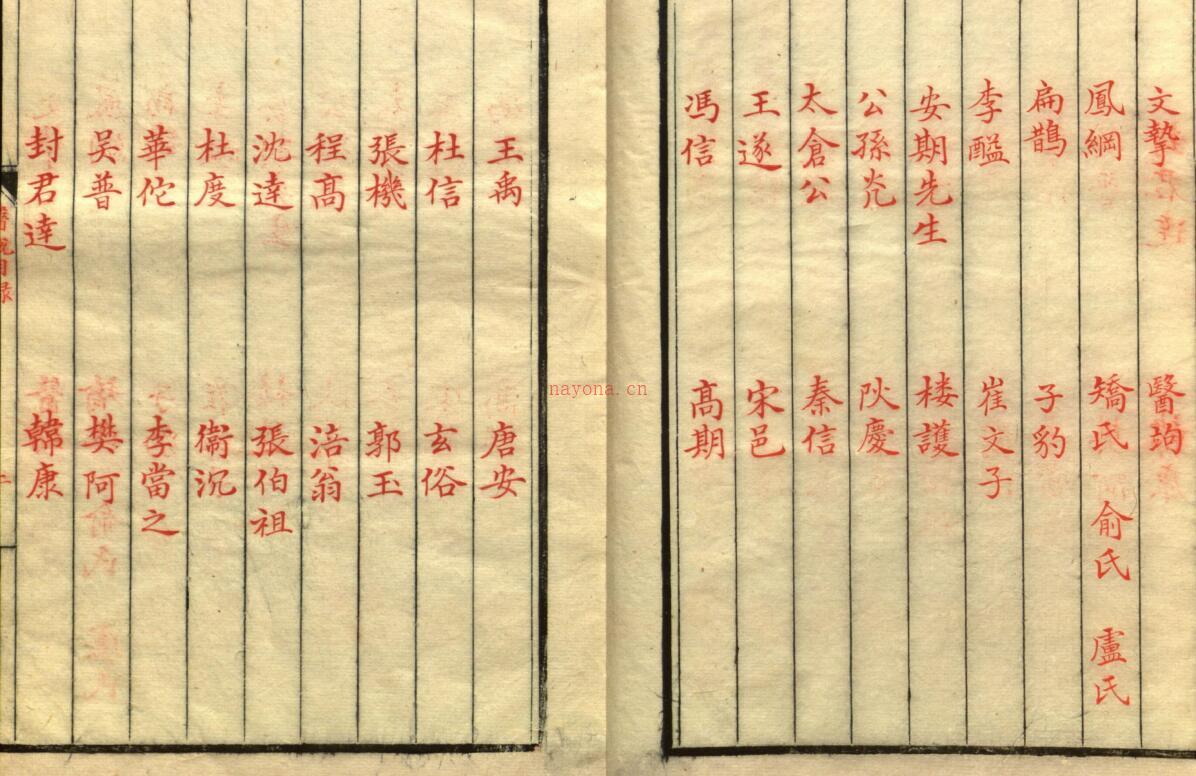 文摯 醫竘
鳳綱 矯氏 俞氏 盧氏
扁鵲 子豹
李醯 崔文子
安期先生 楼護
公孫光 阦慶
太倉公 秦信
王遂 宋邑
馮信 高期
王禹 唐安
杜信 玄俗
張機 郭玉
程高 涪翁
沈逹 張伯祖
杜度 衞沉
華佗 李當之
吴普 樊阿
封君逹 韓康
醫說目録
nayona.cn